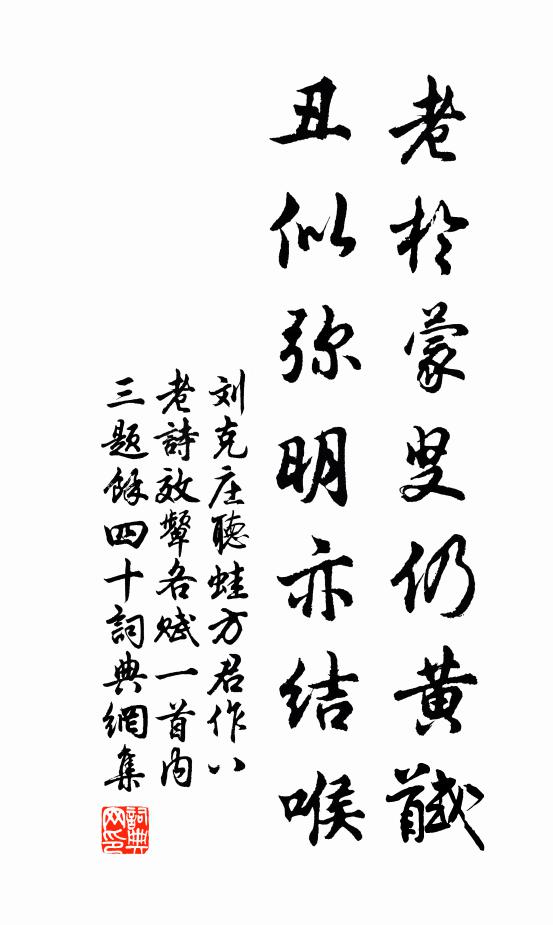 老於蒙叟仍黄馘
丑似弥明亦结喉
刘克庄聽蛙方君作八
老詩效顰各赋一首内
三题餘四十詞典網集
詞典网印